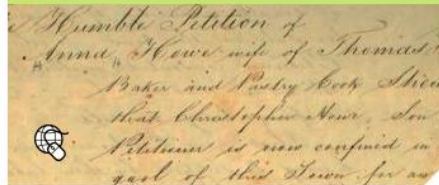 Humble Petition of
Anna Howe wife of Thomas
Baker and Pastry Cook Shew
that Christopher Howe, Son
Petitioner is now confined in
gaol of this Town for an